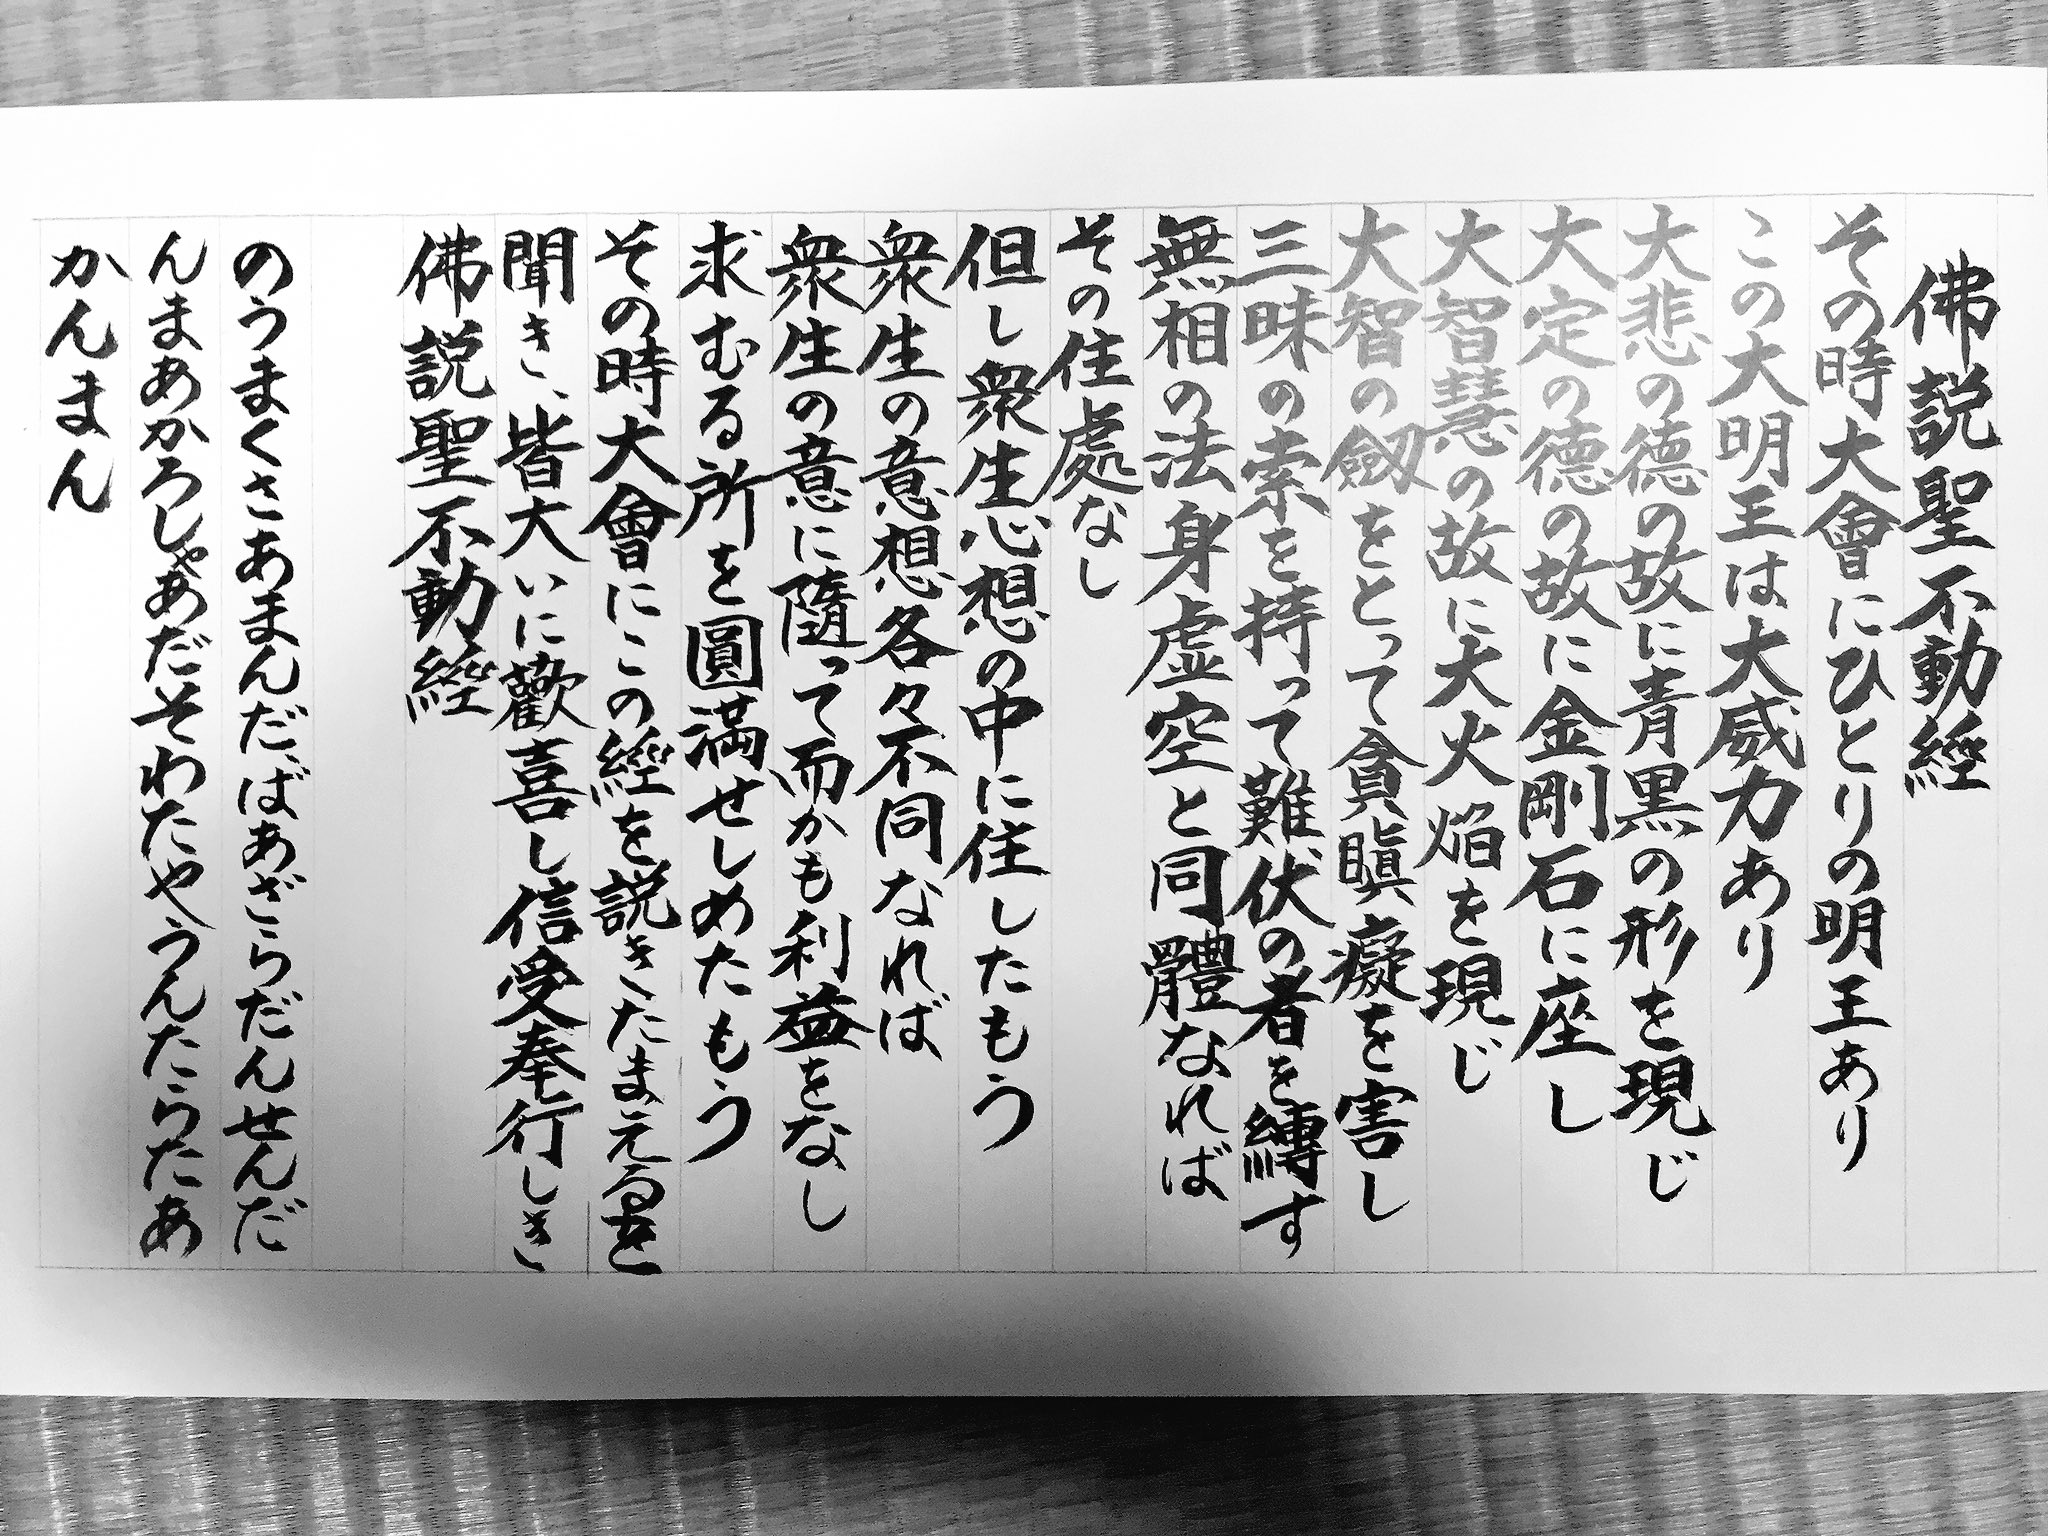 佛説聖不動經
その時大會にひとりの明王あり
この大明王は大威力あり
大悲の徳の故に青黒の形を現じ
大定の徳の故に金剛石に座し
大智慧の故に大火焔を現じ
大智の劔をとって貪瞋癡を害し
三昧の索を持って難伏の者を縛す
無相の法身虚空と同體なれば
その住處なし
但し衆生心想の中に住したもう
衆生の意想各々不同なれば
衆生の意に隨って而かも利益をなし
求むる所を圓満せしめたもう
その時大會にこの經を説きたまえるを
聞き、皆大いに歡喜し信受奉行しき
佛説聖不動經
のうまくさあまんだ、ばあざらだんせんだ
んまあかろしゃあだそわたやうんたらたあ
かんまん